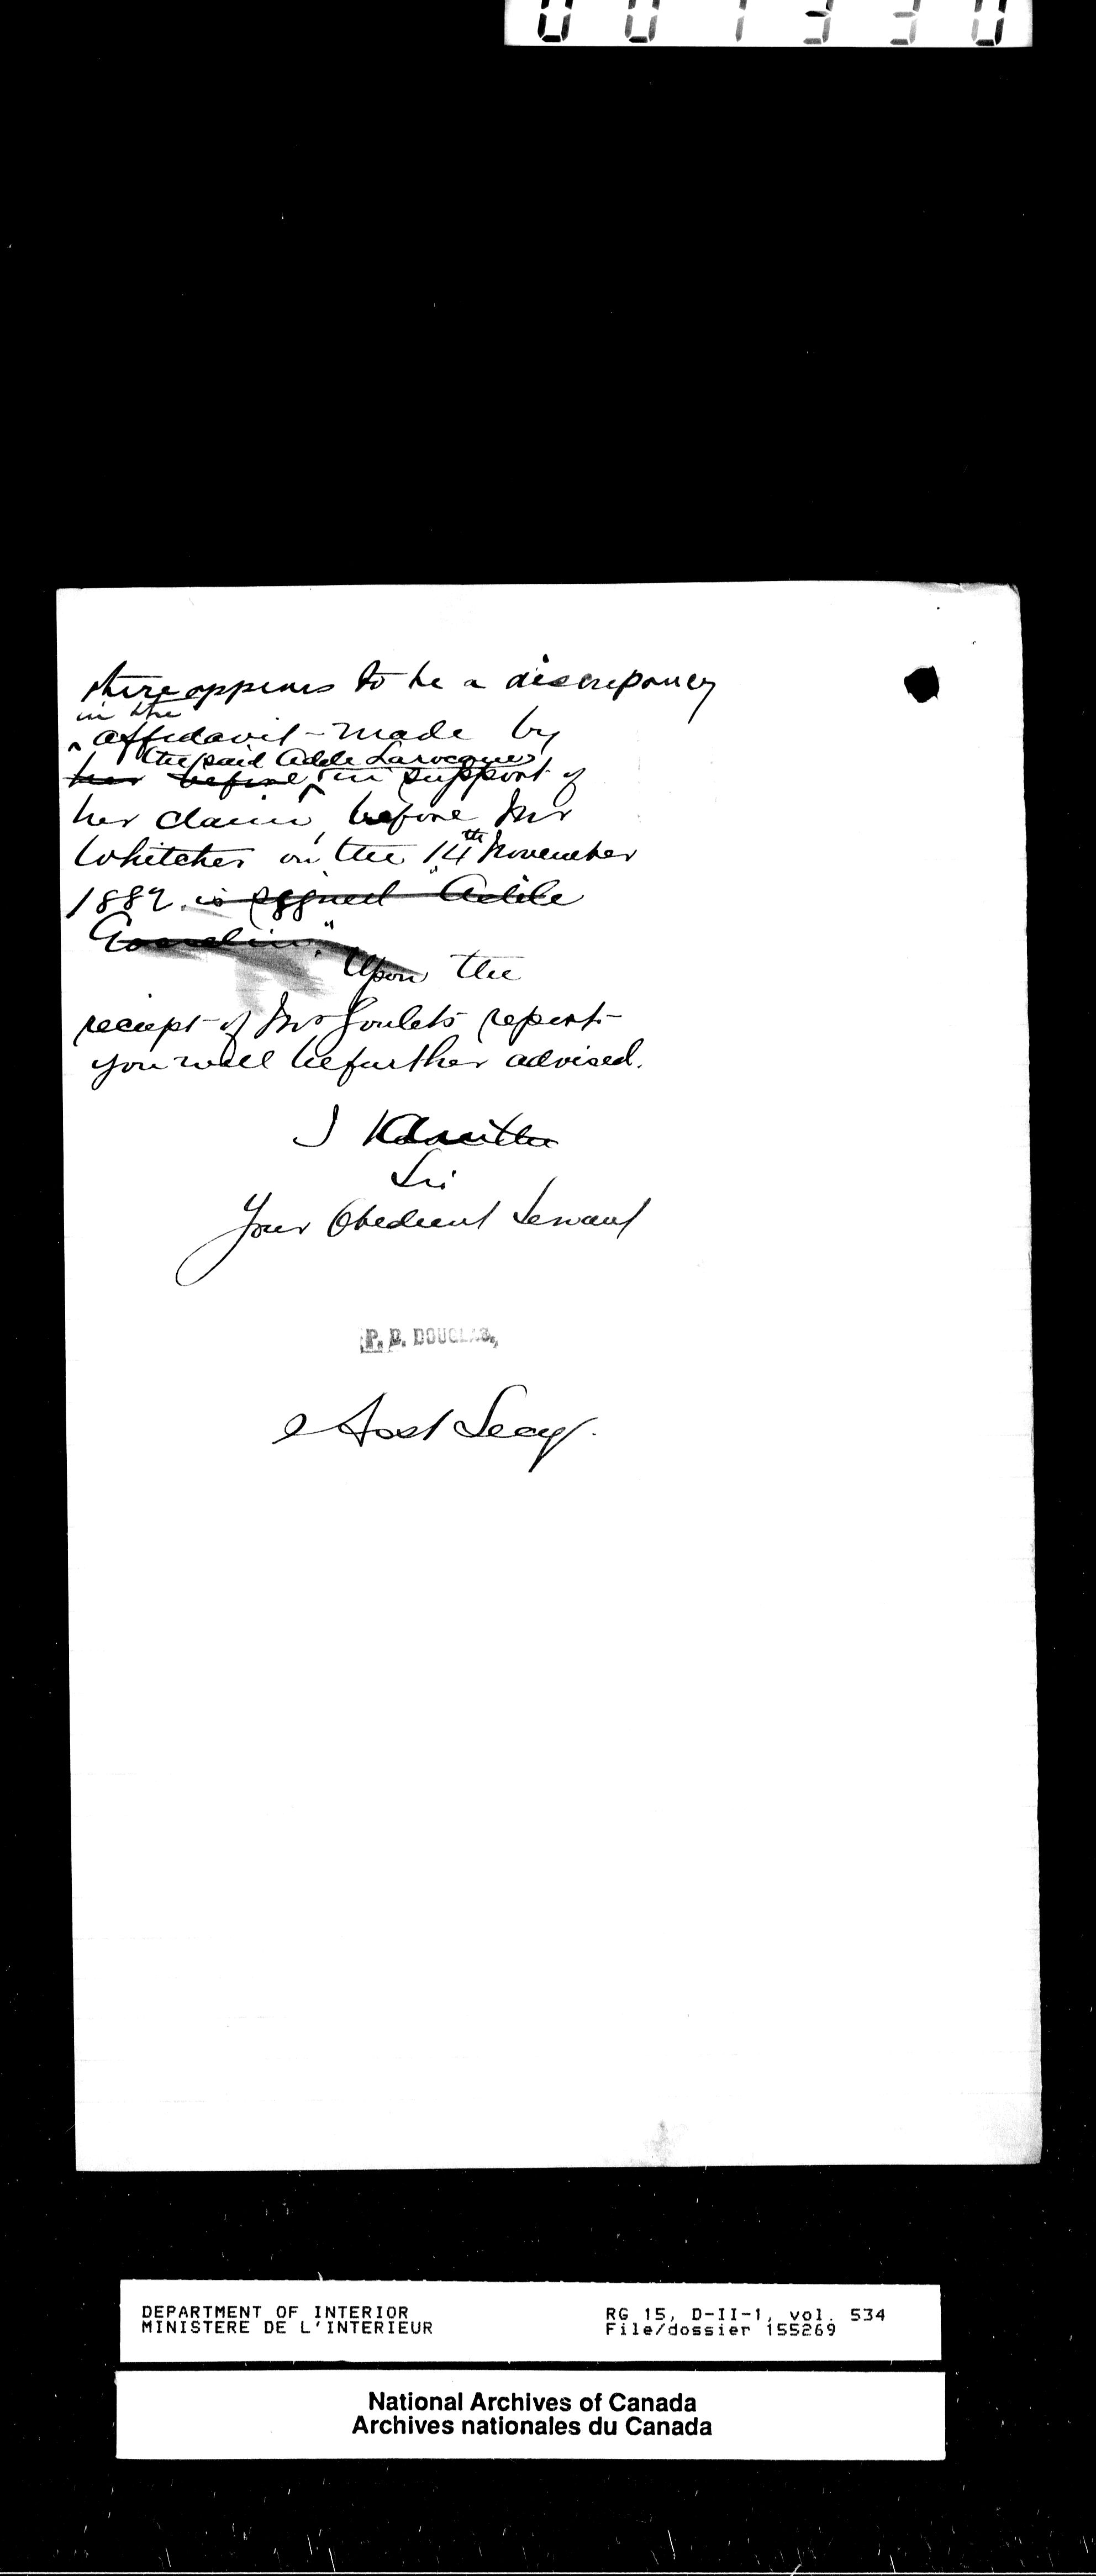 001330
there appears to be a discrepancy
in the
affidavit made by
the said Adele Larocque
her before in support of
her claim, before Mr
Whitcher on the 14th November
1889. is signed "Adele
Gosselin."
Upon the
receipt of Mr Goulets report
you will be further advised.
I
Sir
Your Obedient Servant
P. B. DOUGLAS,
Asst Secy.
DEPARTMENT OF INTERIOR
MINISTERE DE L'INTERIEUR
RG 15, D-II-1, vol. 534
File/dossier 155269
National Archives of Canada
Archives nationales du Canada